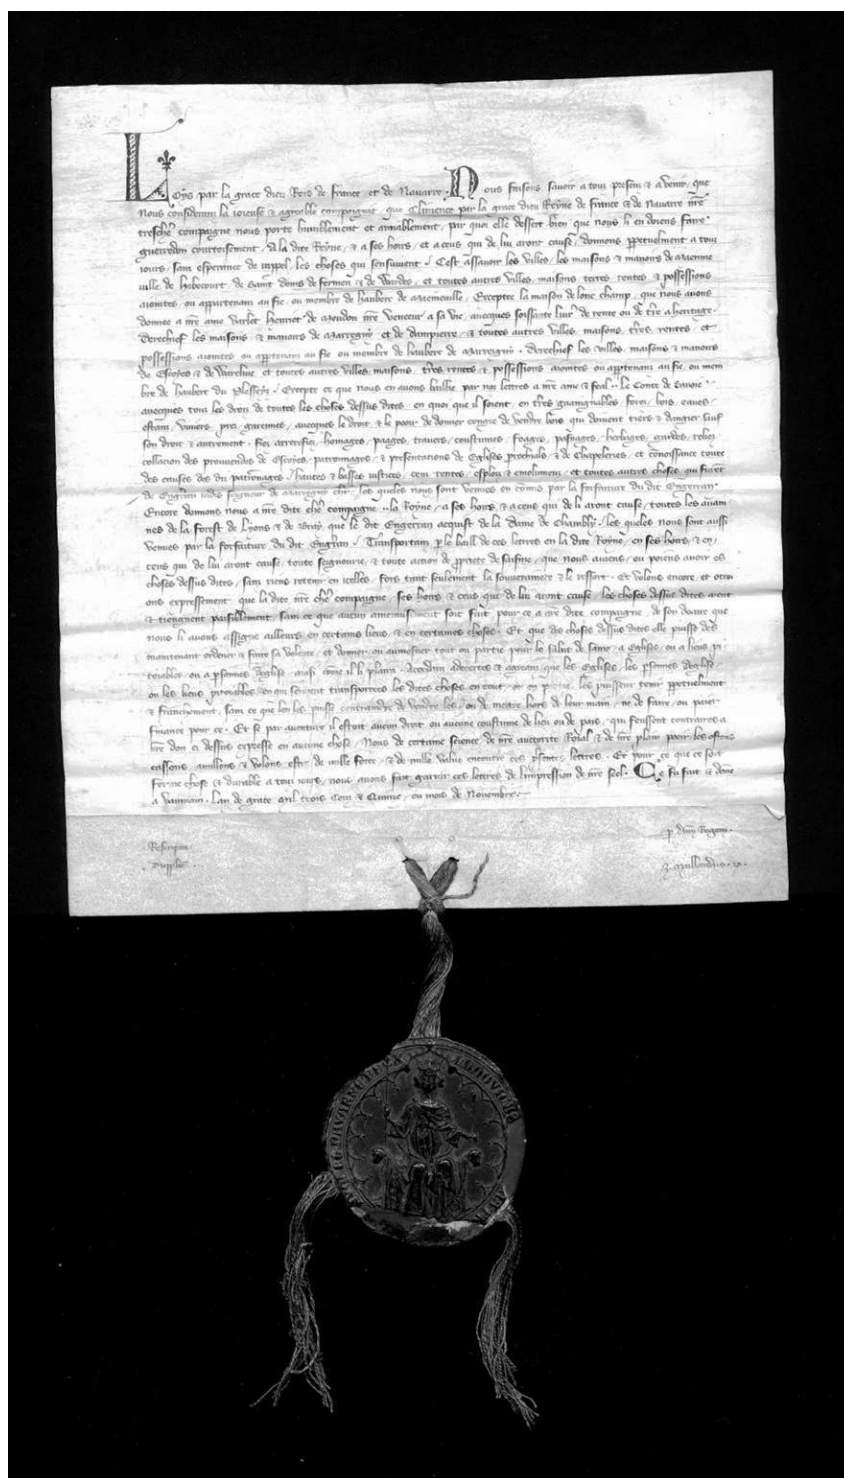 Loys par la grace dieu Rois de france et de Navarre. Nous faisons savoir a touz presenz & avenir, que
Nous consideranz la ioieuse & agreable compaignie, que Climence par la grace dieu Reyne de france & de Navarre nr̃e
treschẽ compaigne nous porte humblement et amiablement, par quoi elle dessert bien que nous li en doiens faire
guerredon courtoisement, A la dite Reyne, & a ses hoirs, et a ceus qui de lui aront cause, donnons ꝑpetuelment a touz
iours, sanz esperance de rappel, les choses qui sensuivent. Cest assavoir les villes, les maisons & manoirs de
ville de hebecourt, de Saint Denis de fermen & de Wardes, et toutes autres villes, maisons, terres, rentes, & possessions
aiointes, ou appartenanz au fie, ou membre de haubere de Exceptee la maison de lonc champ, que nous avons
donnee a nr̃e ame varlet Henriet de Meudon nr̃e veneur a sa vie, avecques soissante livr̃ de rente ou de tr̃e a heritage.
Derechief les maisons, & manoirs de Marregny & de Dampierre, & toutes autres villes, maisons, tr̃es, rentes, et
possessions aiointes ou apꝑtenanz au fie ou membre de haubere de Marregny. Derechief les villes, maisons & manoirs
de Escoyes & de Warclive, et toutes autres villes, maisons, tr̃es, rentes & possessions, aiointes ou apꝑtenanz au fie, ou mem
bre de haubere du Plesseyz. Excepte ce que nous en avons baillie, par noz lettres a nr̃e ame & feal .. le Conte de Savoie.
avecques touz les droiz de toutes les choses dessus dites, en quoi que il soient, en tr̃es gaaignables, forez, bois, eaues,
estanz, viviers, prez, garennes, avecques le droit & le pooir de donner congie de vendre bois qui doivent tierz & dangier, sauf
son droit & autrement, fiez, arrerefiez, homages, paages, travers, coustumes, foages, pasnages, herbages, gardes, reliez
collacion des provendes de Escoyes, patronnages, & presentations de Eglises prochials, & de Chapelenies, et conoissance toute
des causes des diz patronages, hautes & basses iustices, cens, rentes, esploiz & emolumenz, et toutes autres choses qui furent
de Engerran iadis seigneur de Marregny chr̃, les queles nous sont venues en comis par la forfaiture du dit Engerran.
Encore donnons nous a nr̃e dite chẽ compaigne .. la Royne, a ses hoirs, & a ceus qui de li aront cause, toutes les avain
nes de la forest de Lyons & de Bray, que le dit Engerran acquist de la Dame de Chambly, les queles nous sont aussi
venues par la forfaiture du dit Engr̃ran. Transportanz ꝑ le baill de ces lettres en la dite Royne, en ses hoirs, & en
ceus qui de lui aront cause, toute seignourie, & toute action de propriete de saisine, que nous aviens, ou poiens avoir es
choses dessus dites, sanz riens retenir en icelles, fors tant seulement la souveranete & le ressort. Et volons encore, et otroi
ons expressement, que la dite nr̃e chẽ compaigne, ses hoirs & ceus qui de lui aront cause, les choses dessus dites aient
& tieignent paisiblement, sanz ce que aucun amenuisement soit fait pour ce a nr̃e dite compaigne, de son doaire que
nous li avons assigne ailleurs, en certains lieus, & en certaines choses. Et que des choses dessus dites elle puisse des
maintenant ordener & faire sa volente, et donner, ou aumosner tout ou partie pour le salut de same, a Eglises, ou a lieus pi
toiables, ou a ꝑsonnes deglise, aussi come il li plaira. Acordanz adecertes & agreanz, que les Eglises, les ꝑsonnes deglise,
ou les lieus pitoiables, en qui seroient transportees les dites choses en tout ou en partie, les puissent tenir ꝑpetuelment
& franchement, sanz ce que len les puisse contraindre de vendre les, ou de metre hors de leur main, ne de faire, ou paier
finance pour ce. Et se par aventure il estoit aucun droit ou aucune coustume de lieu ou de pais, qui feussent contraires a
nr̃e don ci dessus expresse en aucune chose, Nous de certaine science, de nr̃e auctorite Roial & de nr̃e plain pooir, les ostons
cassons, anullons & volons estre de nulle force, & de nulle value encontre ces presentes lettres. Et pour ce que ce soit
ferme chose & durable a touz iours, nous avons fait garnir ces lettres de limpression de nr̃e seel. Ce fu fait & donne
a lan de grace Mil trois cenz & Quinze, ou mois de Novembre.
ꝑ dñm Regem.
Rescripta
Duppliciter
J. Maillardus
LVDOVICVS
ET NAVARRE REX